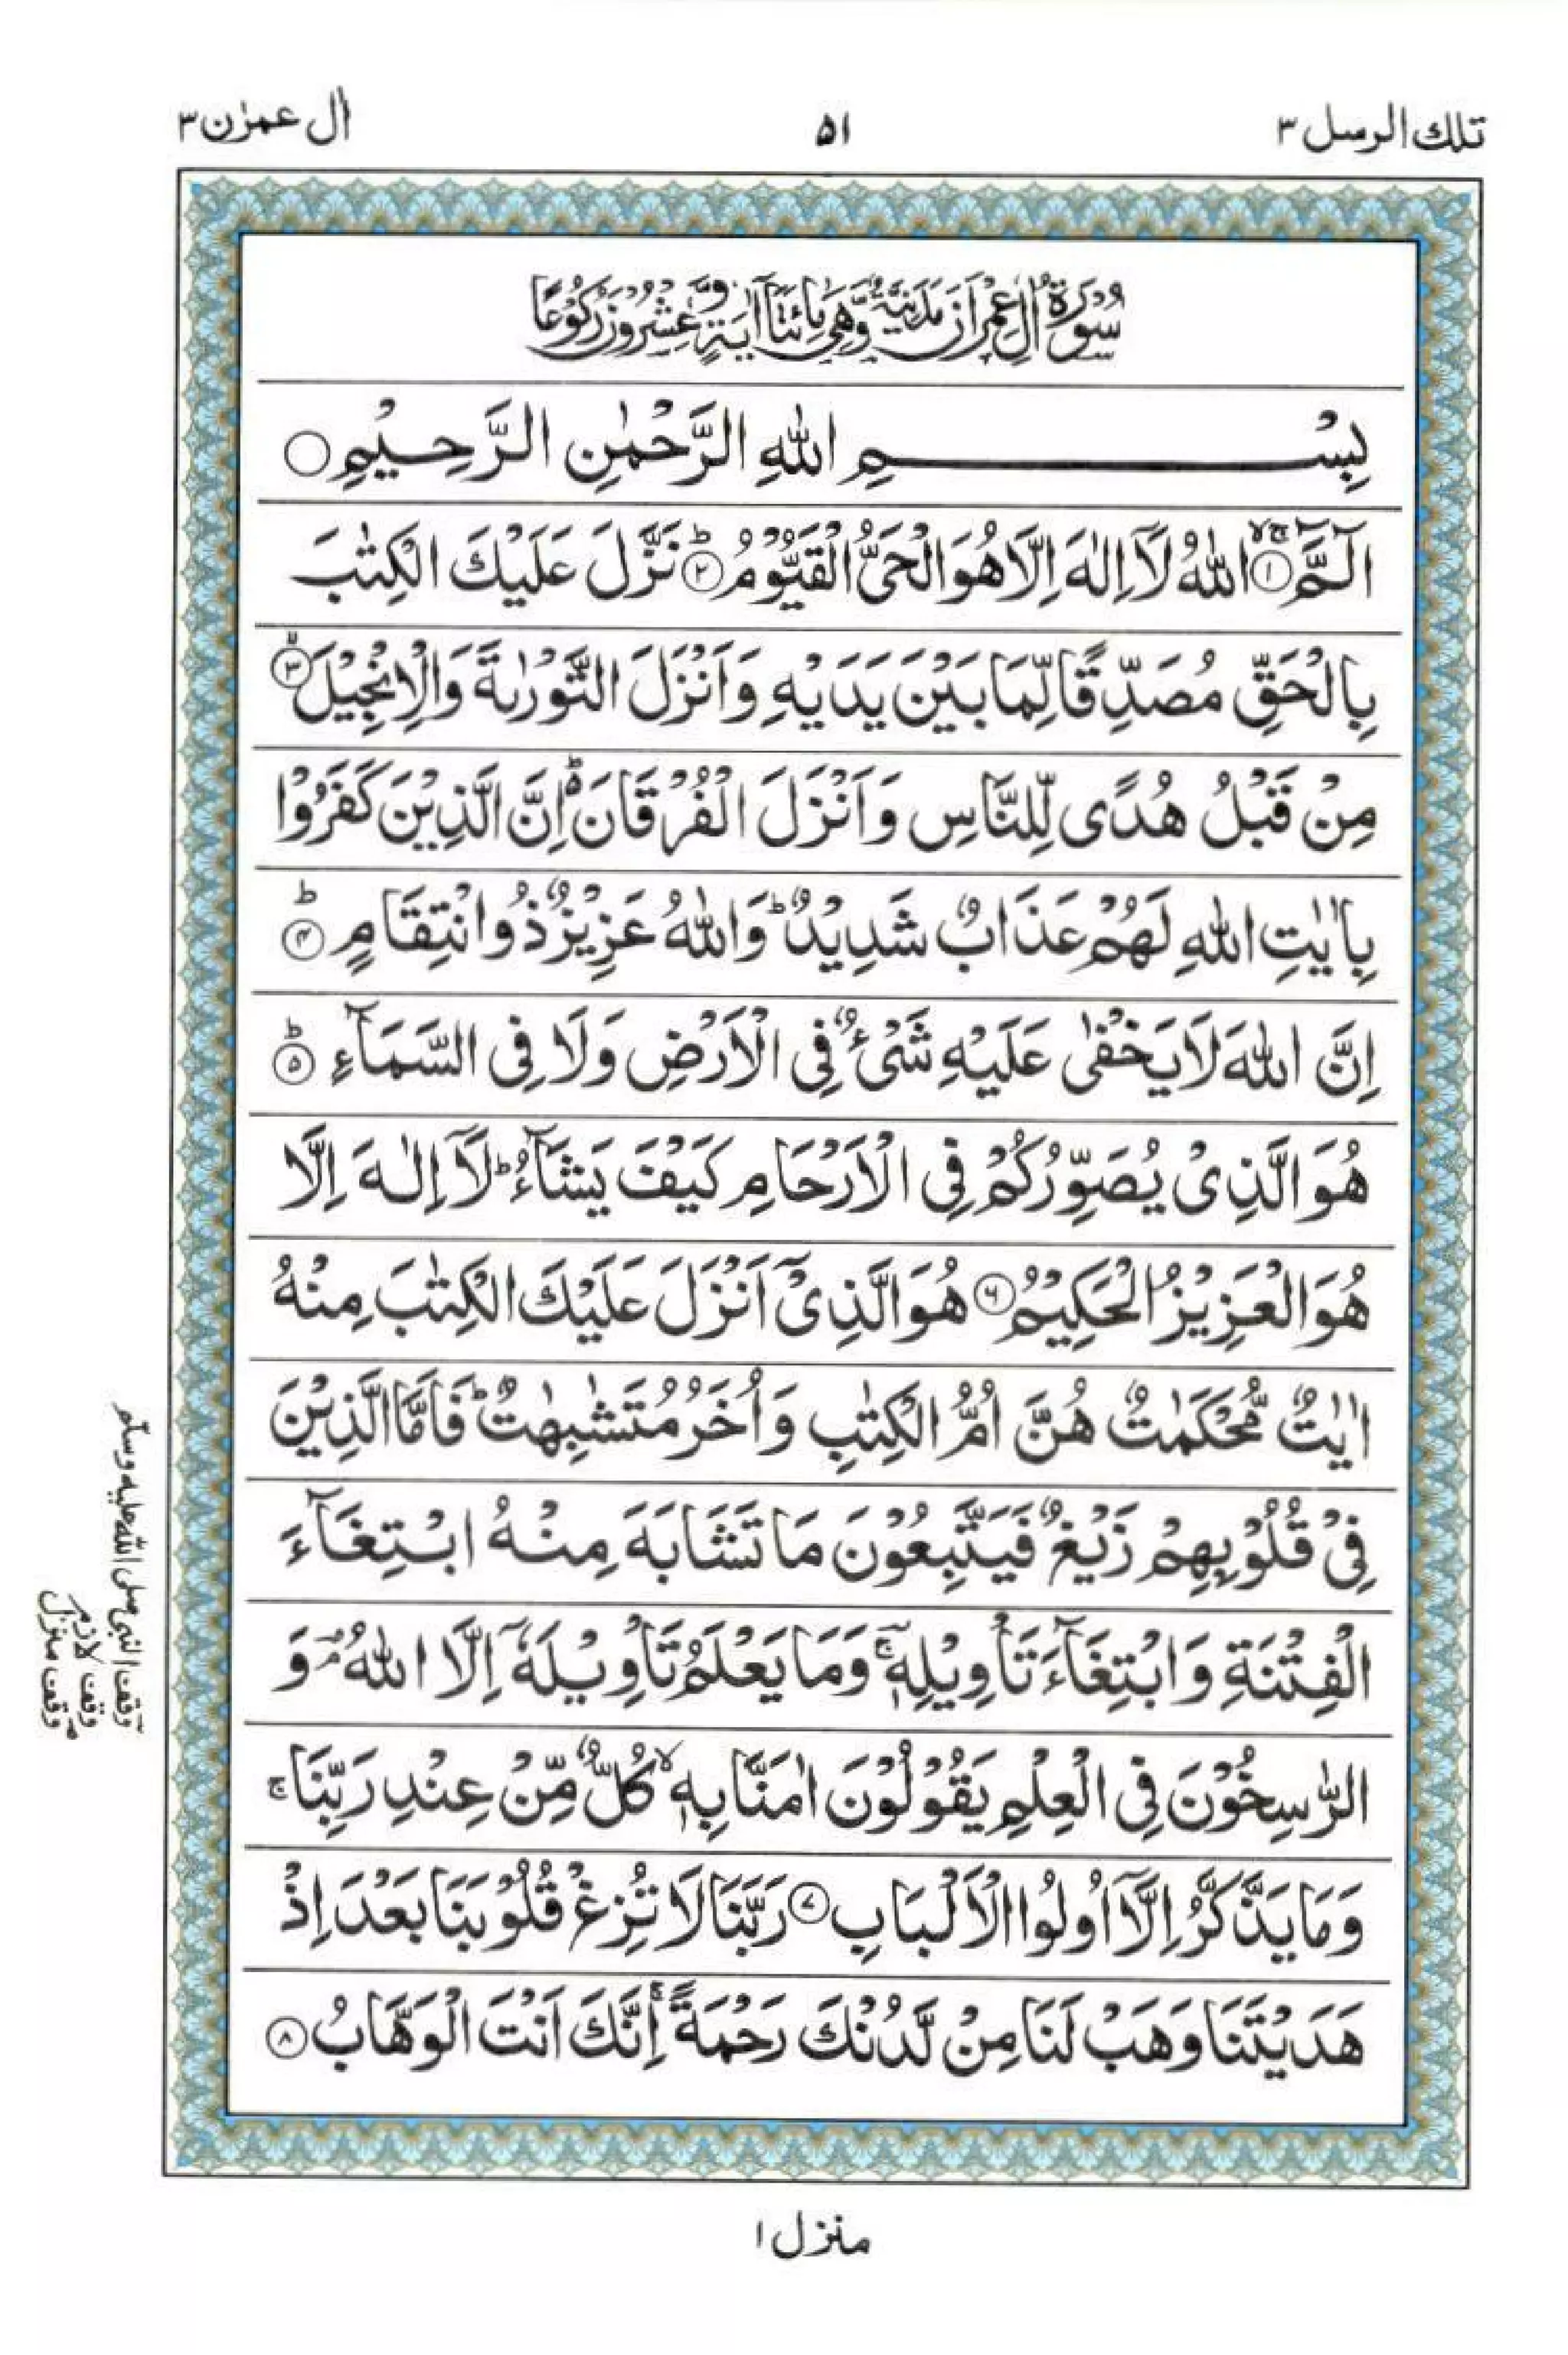 تلك الرسل ٣
٥١
اٰل عمرٰن ٣
سُوْرَةُ اٰلِ عِمْرَانَ مَدَنِيَّةٌ وَّهِىَ مِائَتَا اٰيَةٍ وَّ عِشْرُوْنَ رُكُوْعًا
بِسْمِ اللّٰهِ الرَّحْمٰنِ الرَّحِيْمِ ○
الٓمَّٓ ۙۚ﴿۱﴾ اللّٰهُ لَاۤ اِلٰهَ اِلَّا هُوَ الْحَىُّ الْقَيُّوْمُ ؕ﴿۲﴾ نَزَّلَ عَلَيْكَ الْكِتٰبَ
بِالْحَقِّ مُصَدِّقًا لِّمَا بَيْنَ يَدَيْهِ وَاَنْزَلَ التَّوْرٰىةَ وَالْاِنْجِيْلَ ۙ﴿۳﴾
مِنْ قَبْلُ هُدًى لِّلنَّاسِ وَاَنْزَلَ الْفُرْقَانَ ۬ؕ اِنَّ الَّذِيْنَ كَفَرُوْا
بِاٰيٰتِ اللّٰهِ لَهُمْ عَذَابٌ شَدِيْدٌ ؕ وَاللّٰهُ عَزِيْزٌ ذُو انْتِقَامٍ ؕ﴿۴﴾
اِنَّ اللّٰهَ لَا يَخْفٰى عَلَيْهِ شَىْءٌ فِى الْاَرْضِ وَلَا فِى السَّمَآءِ ؕ﴿۵﴾
هُوَ الَّذِىْ يُصَوِّرُكُمْ فِى الْاَرْحَامِ كَيْفَ يَشَآءُ ؕ لَاۤ اِلٰهَ اِلَّا
هُوَ الْعَزِيْزُ الْحَكِيْمُ ﴿۶﴾ هُوَ الَّذِىْۤ اَنْزَلَ عَلَيْكَ الْكِتٰبَ مِنْهُ
اٰيٰتٌ مُّحْكَمٰتٌ هُنَّ اُمُّ الْكِتٰبِ وَاُخَرُ مُتَشٰبِهٰتٌ ؕ فَاَمَّا الَّذِيْنَ
فِىْ قُلُوْبِهِمْ زَيْغٌ فَيَتَّبِعُوْنَ مَا تَشَابَهَ مِنْهُ ابْتِغَآءَ
الْفِتْنَةِ وَابْتِغَآءَ تَاْوِيْلِهٖ ۚ وَمَا يَعْلَمُ تَاْوِيْلَهٗۤ اِلَّا اللّٰهُ ۘ وَ
الرّٰسِخُوْنَ فِى الْعِلْمِ يَقُوْلُوْنَ اٰمَنَّا بِهٖ ۙ كُلٌّ مِّنْ عِنْدِ رَبِّنَا ۚ
وَمَا يَذَّكَّرُ اِلَّاۤ اُولُوا الْاَلْبَابِ ﴿۷﴾ رَبَّنَا لَا تُزِغْ قُلُوْبَنَا بَعْدَ اِذْ
هَدَيْتَنَا وَهَبْ لَنَا مِنْ لَّدُنْكَ رَحْمَةً ۚ اِنَّكَ اَنْتَ الْوَهَّابُ ﴿۸﴾
وقف النبى صلى الله عليه وسلم
وقف لازم
وقف منزل
منزل ١